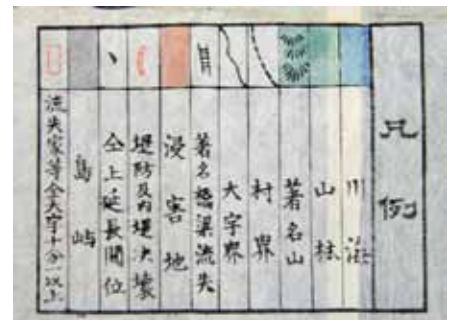 凡例
川海
山林
著名山
村界
大字界
著名橋梁流失
浸害地
堤防及内堤决壊
仝上延長間位
島嶼
流失家等全大字十分一以上